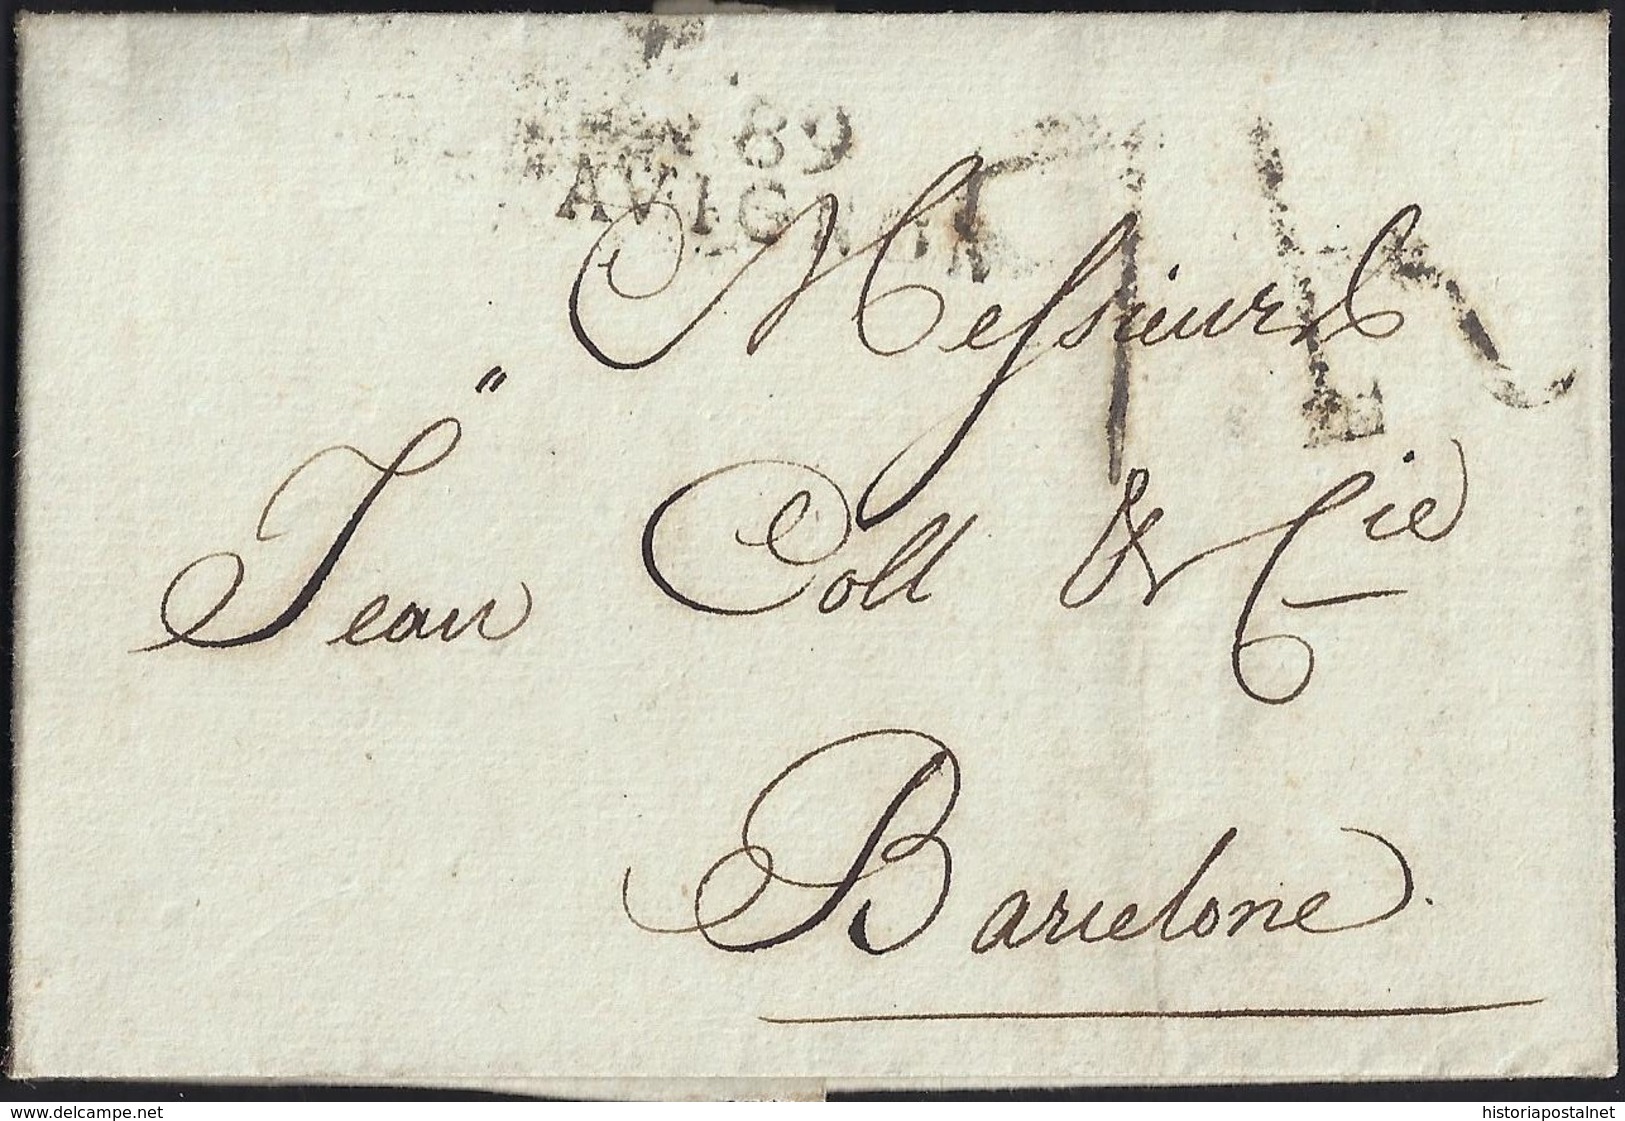 89
AVIGNON
Messieurs
Jean Coll & Cie
Barcelone.
delcampe.net
historiapostalnet